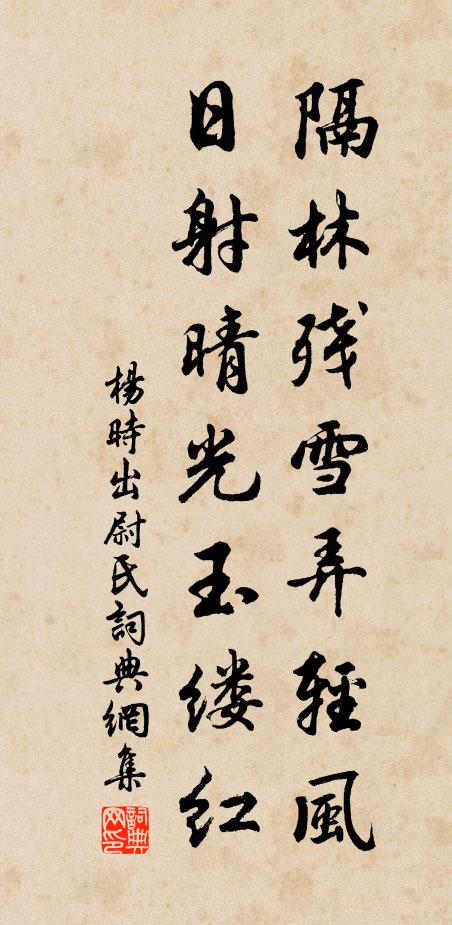 隔林残雪弄輕風
日射晴光玉缕红
楊時出尉氏詞典網集
詞典網印